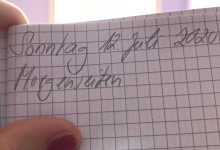 Sonntag 12 Juli 2020
Morgenseiten